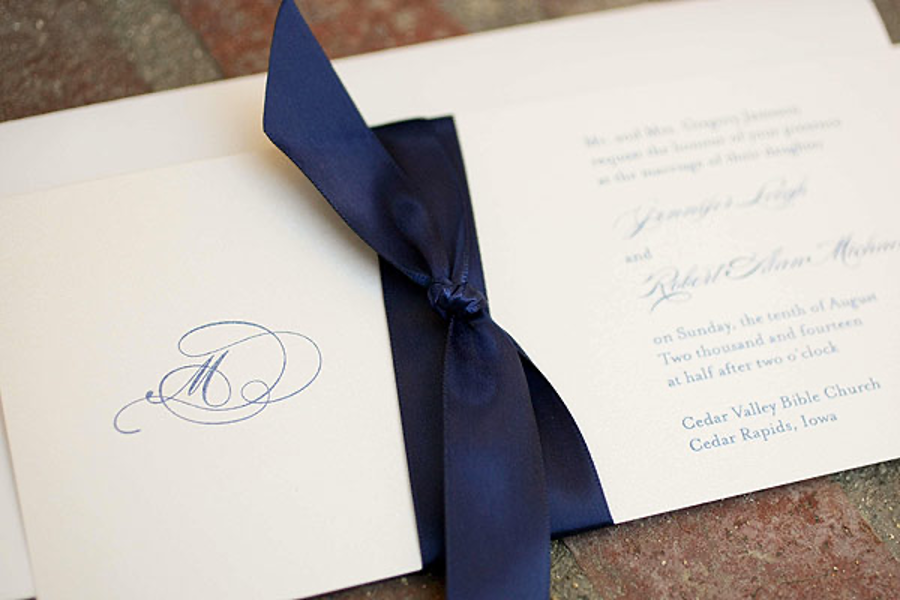 M
Mr. and Mrs. Gregory
request the honor of your presence
at the marriage of their daughter
Jennifer Leigh
and
Robert Adam
on Sunday, the tenth of August
Two thousand and fourteen
at half after two o'clock
Cedar Valley Bible Church
Cedar Rapids, Iowa